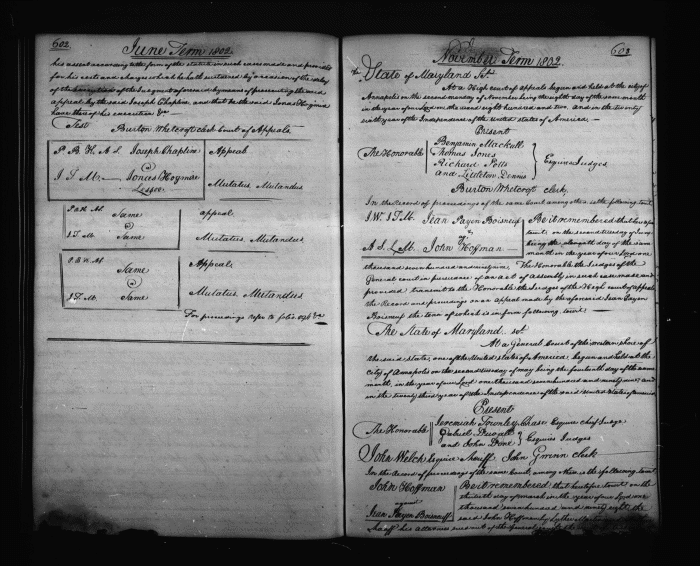 602
June Term 1802.
his assent according to the form of the statute in such cases made and provided
for his costs and charges which he hath sustained by occasion of the delay
of the execution of the Judgment aforesaid by means of presenting the said
appeal by the said Joseph Chapline, and that the said Jonas Hogmire
have thereof his execution &c
Test Burton Whetcroft clerk Court of Appeals
P. B. K. A. S. Joseph Chapline Appeal
I T. M. Jonas Hogmire Lessee Mutatis Mutandis
Same appeal
I T. M. Same Mutatis Mutandis
Same Appeal
I T. M. Same Mutatis Mutandis
For proceedings refer to folio
603
November Term 1802
State of Maryland Sct.
At a High court of appeals began and held at the city of
Annapolis on the second monday of November being the eighth day of the same month
in the year of our Lord one thousand eight hundred and two, and in the twenty
sixth year of the Independence of the United States of America
Present
The Honorable
Benjamin Mackall
Thomas Jones
Richard Potts
and Littleton Dennis
Esquires Judges
Burton Whetcroft Clerk,
In the Record of proceedings of the same Court among others is the following to wit
I.W. I.T.M. Jean Payen Boisneuf
vs
A. S. L. M. John Hoffman
Be it remembered that heretofore
to wit on the second tuesday of
being the eleventh day of the same
month in the year of our Lord one
thousand seven hundred and ninety nine, The Honorable the Judges of the
General court in pursuance of an act of assembly in such case made and
provided transmit to the Honorable the Judges of the High court of appeals
the Record and proceedings on an appeal made by the aforesaid Jean Payen
Boisneuf the tenor of which is in form following to wit:
The State of Maryland Sct.
At a General Court of the western shore of
the said state, one of the United States of America, began and held at the
City of Annapolis on the second tuesday of may being the fourteenth day of the same
month, in the year of our Lord one thousand seven hundred and ninety nine and
in the twenty third year of the Independence of the said United States of America
Present
The Honorable
Jeremiah Townley Chase Esquire chief Judge
Gabriel Duvall
and John Done
Esquires Judges
John Welch Esquire Sheriff John Gwinn clerk
In the Record of proceedings of the same Court, among others is the following to wit
John Hoffman
against
Jean Payen Boisneuf
Be it remembered that heretofore to wit on the
thirtieth day of march in the year of our Lord one
thousand seven hundred and ninety eight, the
said John Hoffman by Luther Martin